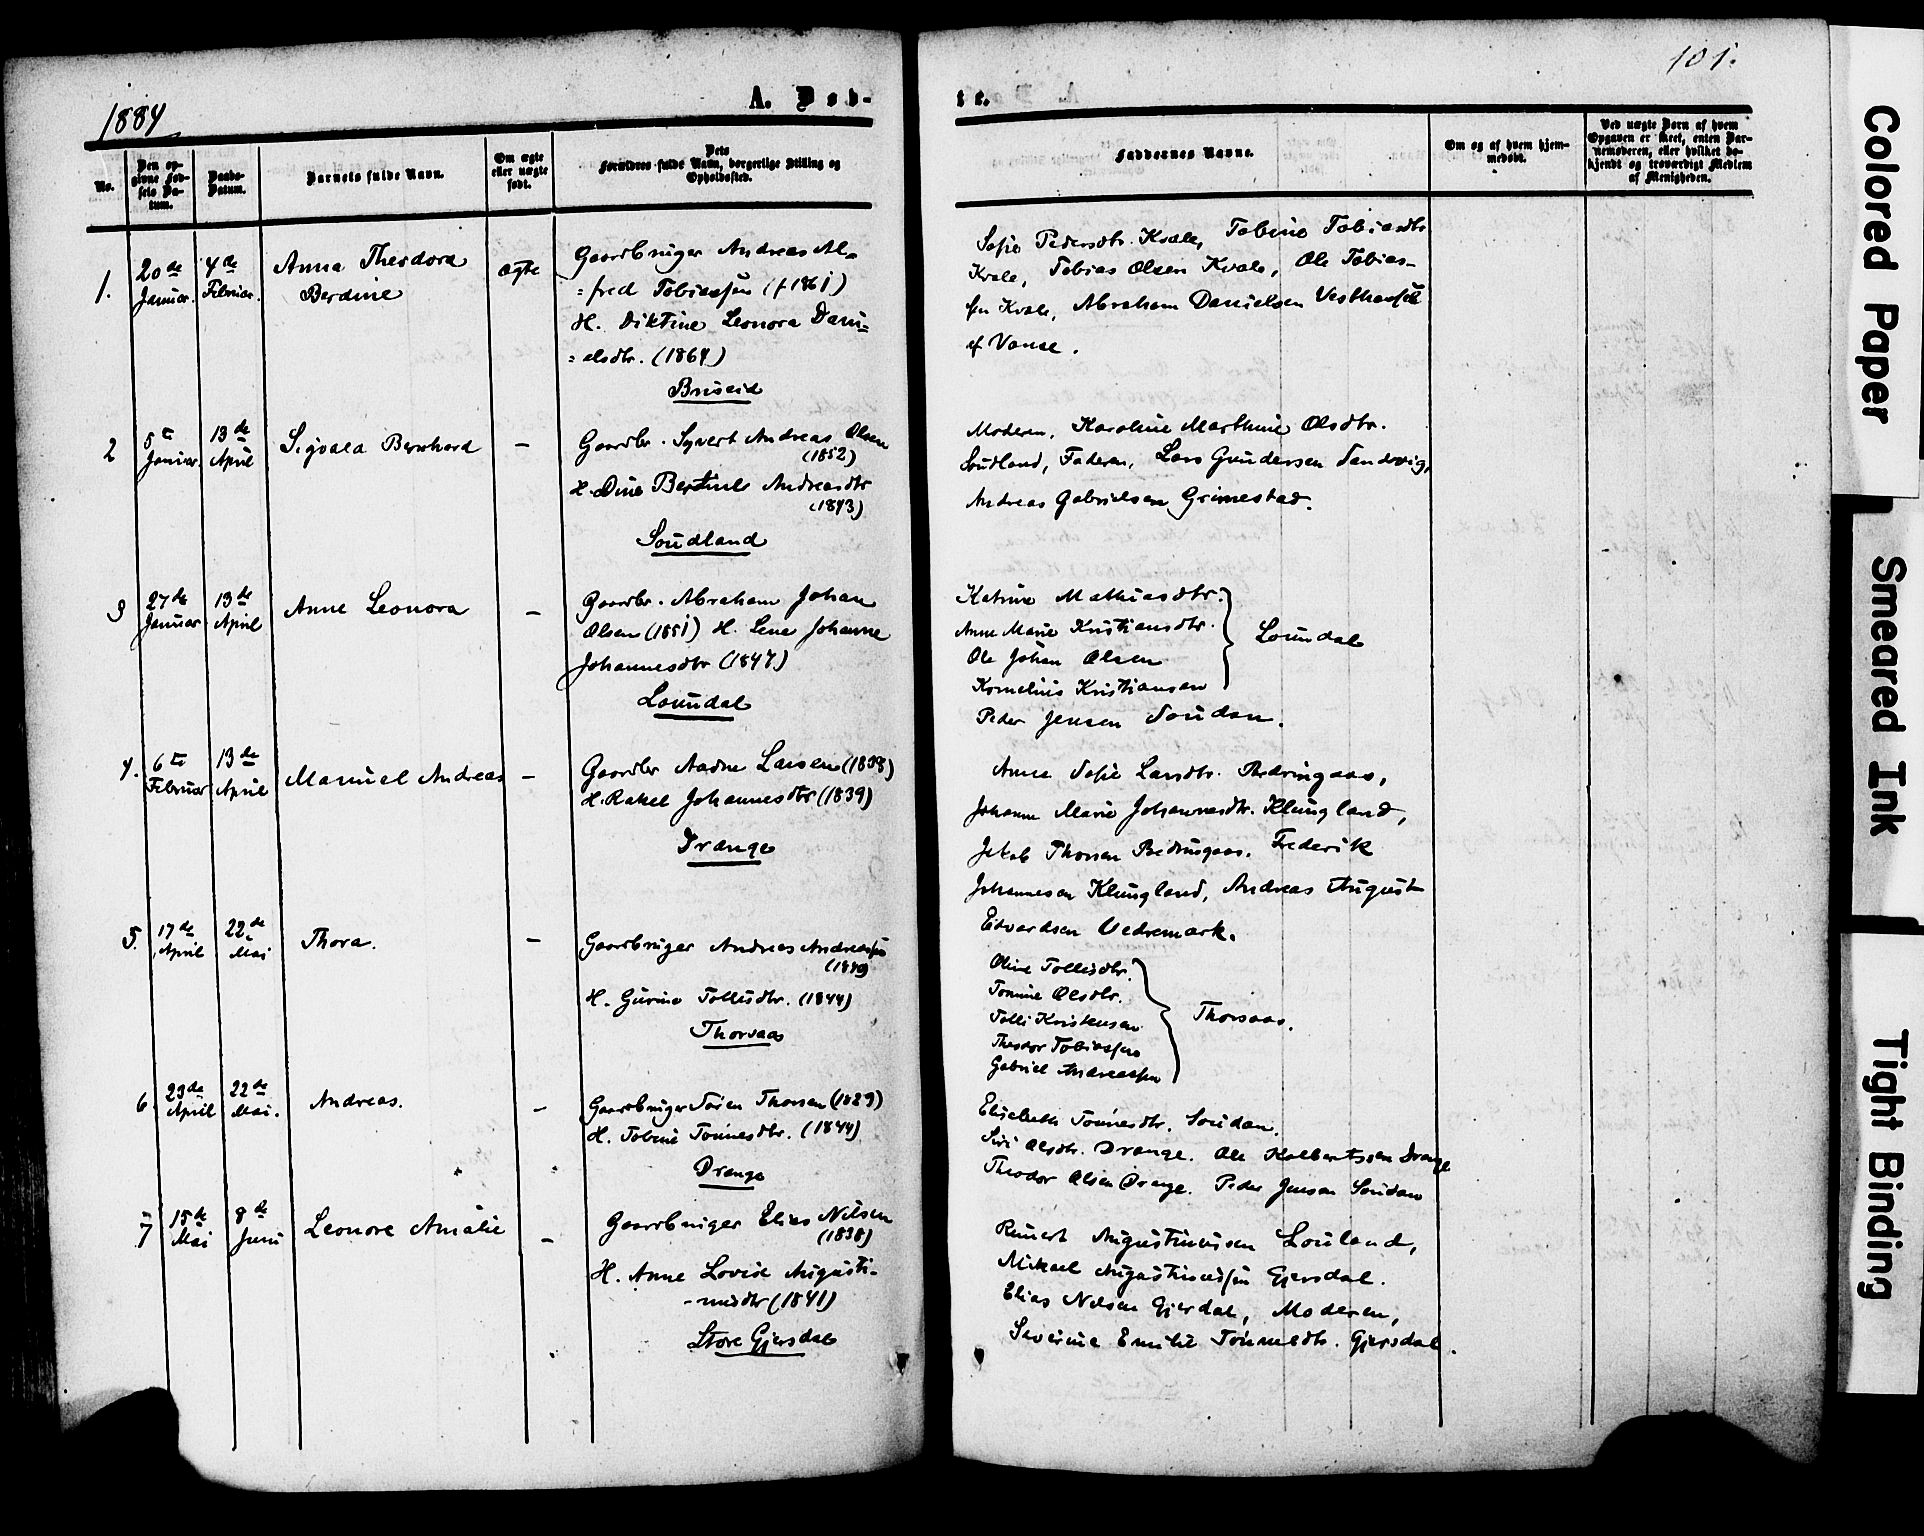 1884
A. Døb-
te.
101.
No.
Den op-
givne Fød-
sels Da-
tum.
Daabs-
Datum.
Barnets fulde Navn.
Om ægte
eller uægte
født.
Dets
Forældres fulde Navn, borgerlige Stilling og
Opholdssted.
Faddernes Navne.
Om og af hvem hjem-
medøbt.
Ved uægte Børn af hvem
Opgaven er skeet, enten Bar-
nemoderen, eller hvilket be-
kjendt og troværdigt Medlem
af Menigheden.
1.
20de Januar.
4de Februar.
Anna Theodora
Berdine
ægte
Gaardbruger Andreas Al-
fred Tobiassen (f 1861)
H. Diktine Leonora Dani-
elsdtr. (1864)
Briseid
Sofie Pedersdtr. Kvale, Tobine Tobiasdtr
Kvale, Tobias Olsen Kvale, Ole Tobias-
sen Kvale, Abraham Danielsen
af Vanse.
2
5te Januar.
13de April
Sigvald Bernhard
-
Gaardbr. Syvert Andreas Olsen
(1852)
H. Dine Bertine Andreasdtr
(1843)
Soudland
Moderen, Karoline Marthine Olsdtr.
Soudland, Faderen, Lars Gundersen Sandvig,
Andreas Gabrielsen Grimestad.
3
27de Januar
13de April
Anne Leonora
-
Gaardbr. Abraham Johan
Olsen (1851) H. Lene Johanne
Johannesdtr (1847)
Loundal
Katrine Mathiasdtr.
Anne Marie Kristiansdtr.
Ole Johan Olsen
Kornelius Kristiansen
Loundal
Peder Jensen Soudan.
4.
6te Februar
13de April
Manuel Andreas
-
Gaardbr Aadne Larsen (1838)
H. Rakel Johannesdtr (1839)
Drange
Anna Sofie Larsdtr.
Johanne Marie Johannesdtr. Klungland,
Jakob Thorsen Frederik
Johannesen Klungland, Andreas August
Edvardsen Vedremark.
5.
17de April
22de Mai
Thora.
-
Gaardbruger Andreas Andreassen
(1840)
H. Gurine Tollisdtr. (1844)
Thorsaas
Oline Tollisdtr.
Tomine Olsdtr.
Tolli Kristensen
Theodor Tobiassen
Gabriel Andreassen
Thorsaas.
6
23de April
22de Mai.
Andreas.
-
Gaardbruger Søren Thorsen (1829)
H. Tobine Tønnesdtr. (1844)
Drange
Elisabeth Tønnesdtr. Soudan.
Siri Olsdtr. Drange. Ole Kolbentssen Drange
Theodor Olsen Drange. Peder Jensen Soudan
7
15de Mai
8de Juni
Leonore Amalie
-
Gaardbruger Elias Nilsen
(1838)
H. Anne Lovise Augusti-
nusdtr (1841)
Store Gjersdal
Reinert Augustinussen Louland,
Mikael Augustinussen Gjersdal.
Elias Nilsen Gjerdal, Moderen,
Severine Emilie Tønnesdtr. Gjersdal.
Colored Paper
Smeared Ink
Tight Binding